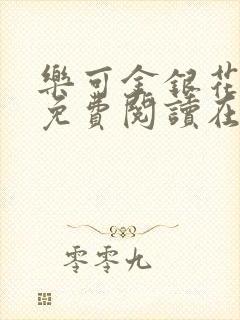 樂可金銀花
免費閱讀在
零零九